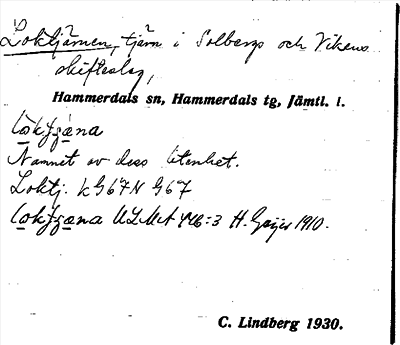 Loktjärnen, tjärn i Solbergs och Vikens
skifteslag,
Hammerdals sn, Hammerdals tg, Jämtl. l.
Namnet av dess litenhet.
Loktj. k G67 N G67
ULMA 446:3 H. Geijer 1910.
C. Lindberg 1930.